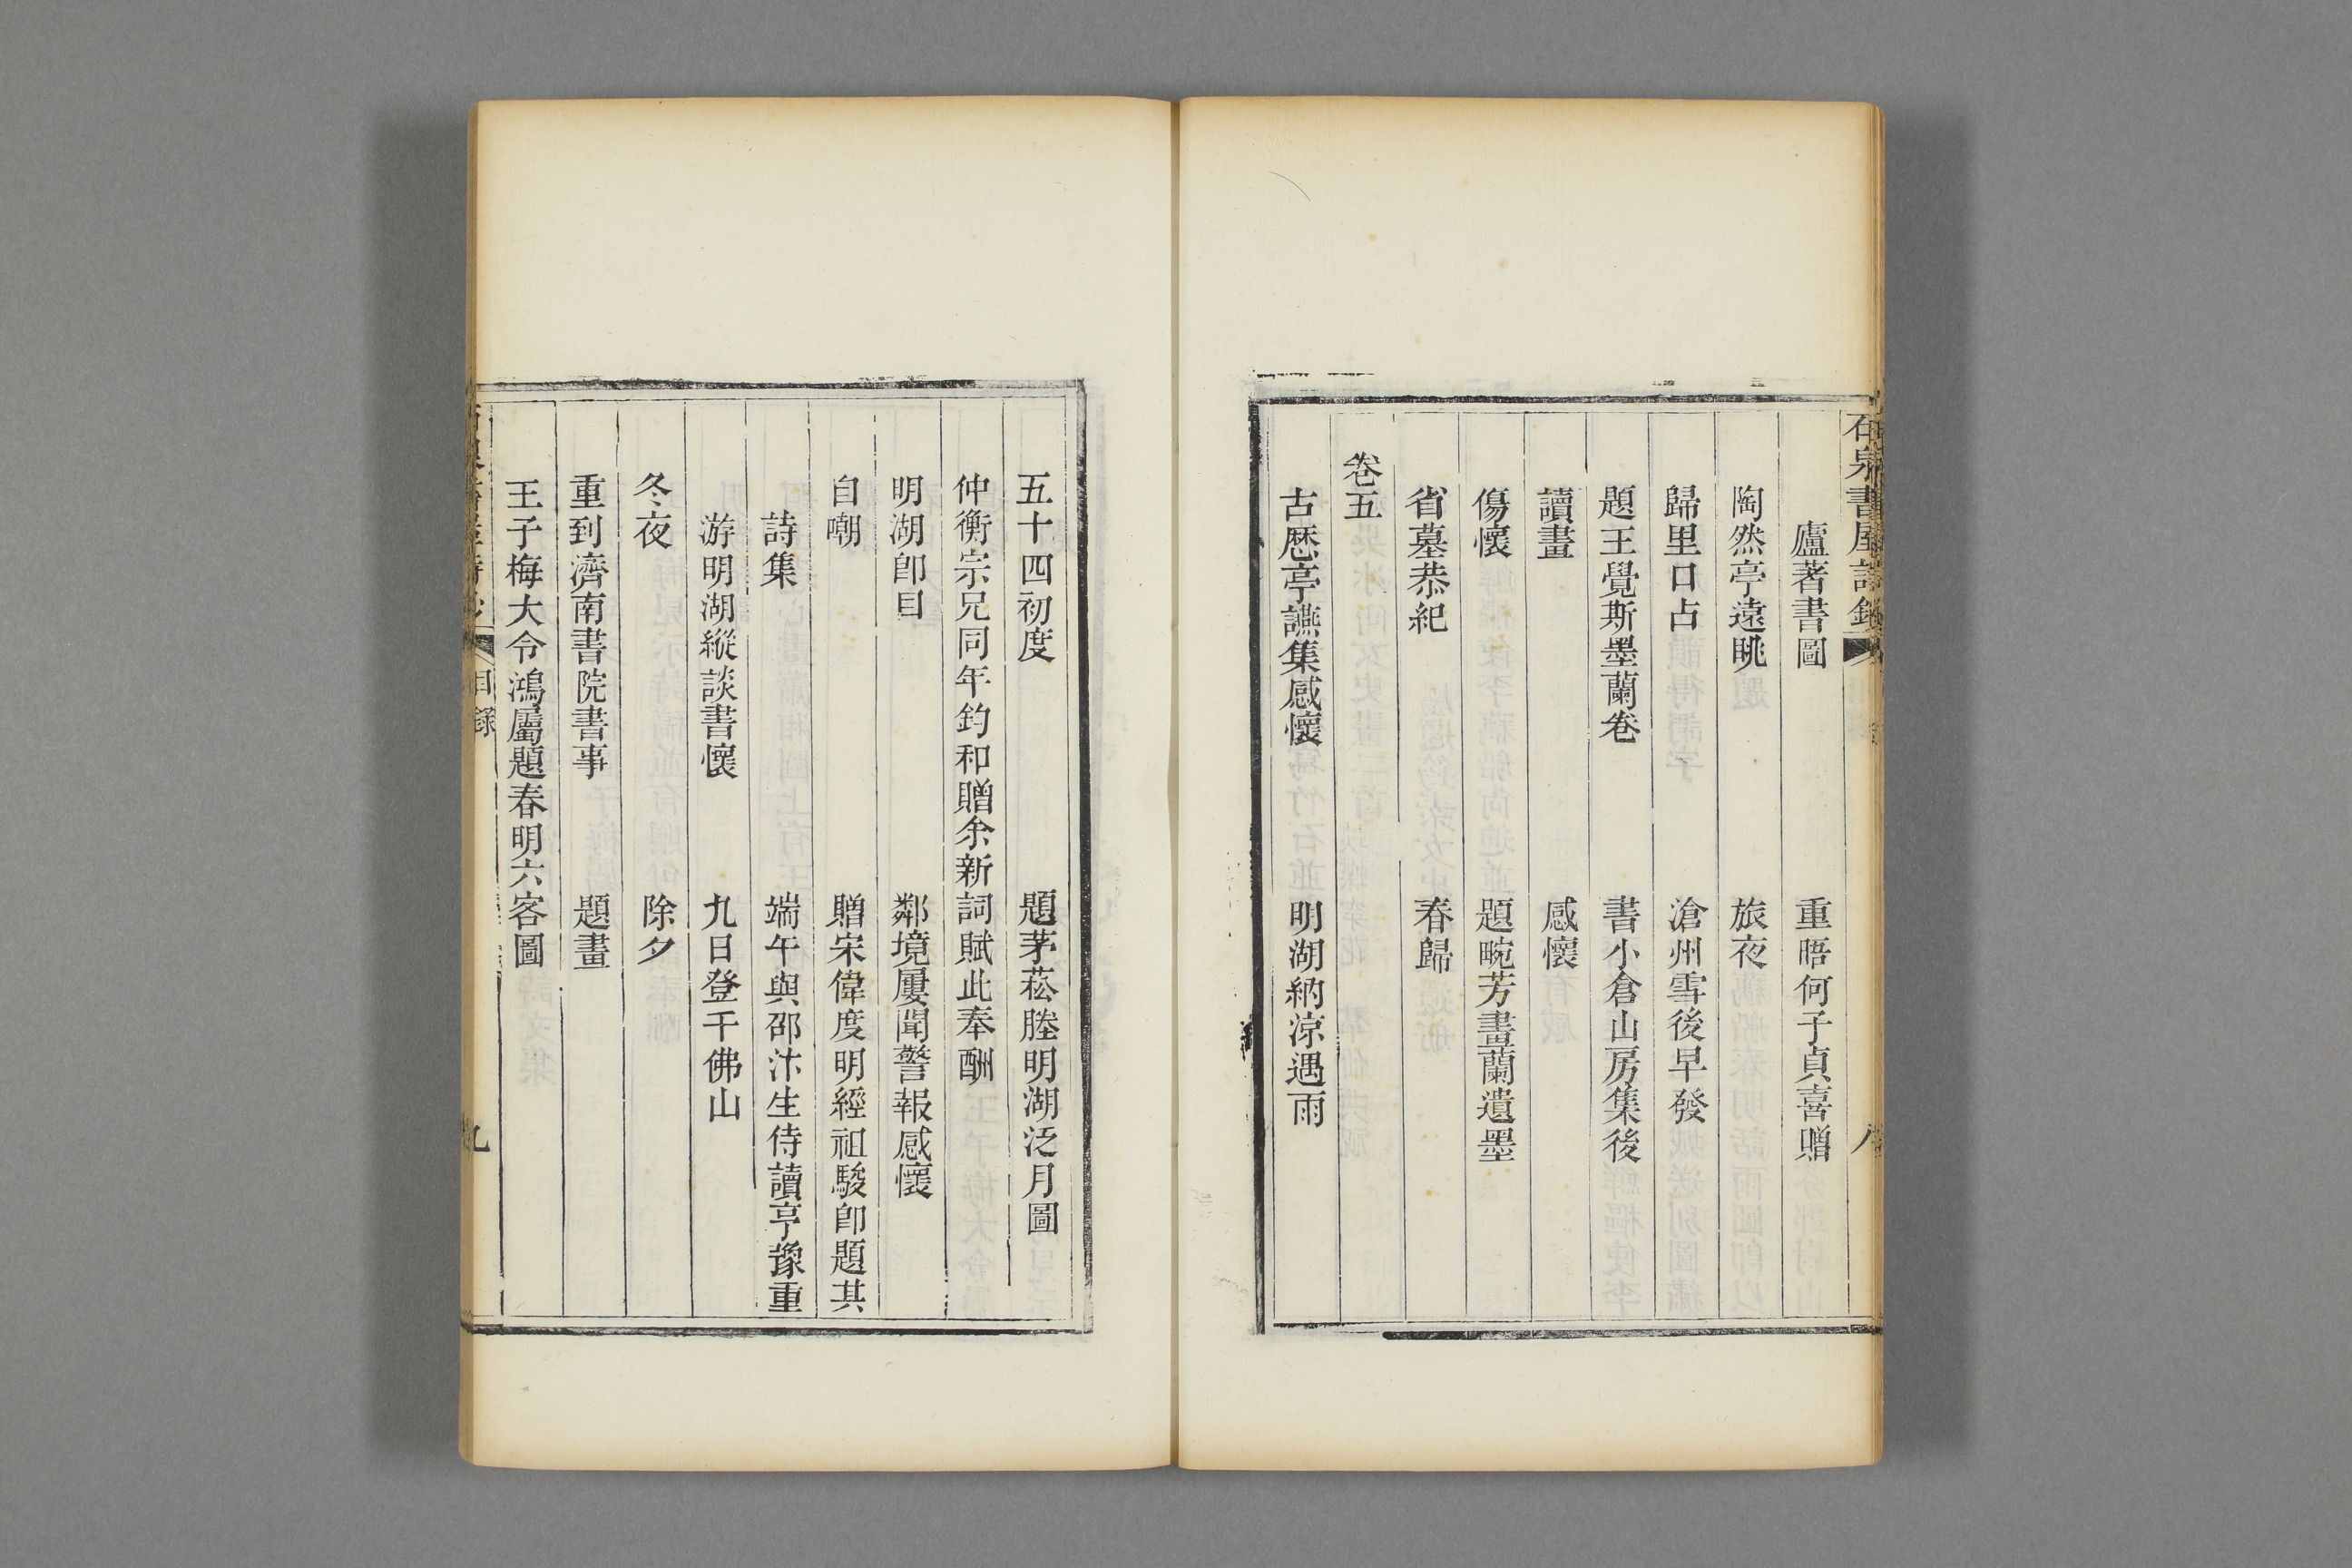 廬著書圖　重晤何子貞喜贈
陶然亭遠眺　旅夜
歸里口占　滄州雪後早發
題王覺斯墨蘭卷　書小倉山房集後
讀畫　感懷
傷懷　題畹芳畫蘭遺墨
省墓恭紀　春歸
卷五
古厯亭讌集感懷　明湖納涼遇雨
五十四初度　題茅菘塍明湖泛月圖
仲衡宗兄同年鈞和贈余新詞賦此奉酬
明湖卽目　鄰境屢聞警報感懷
自嘲　贈宋偉度明經祖駿卽題其
詩集　端午與邵汴生侍讀亨豫重
游明湖縱談書懷　九日登千佛山
冬夜　除夕
重到濟南書院書事　題畫
王子梅大令鴻屬題春明六客圖
目錄
九